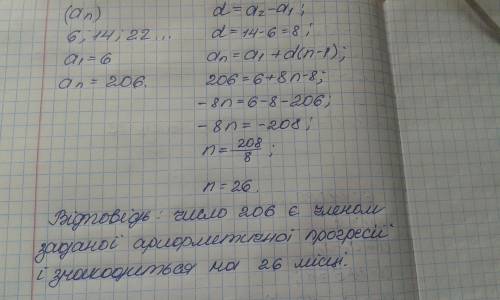 (an)
6; 14; 22...
a1 = 6
an = 206.
d = a2 - a1;
d = 14 - 6 = 8;
an = a1 + d(n-1);
206 = 6 + 8n - 8;
- 8n = 6 - 8 - 206;
- 8n = - 208;
n = 208/8;
n = 26.
Відповідь: число 206 є членом
заданої арифметичної прогресії
і знаходиться на 26 місці.